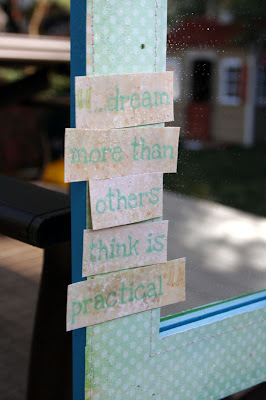 "...dream
more than
others
think is
practical"